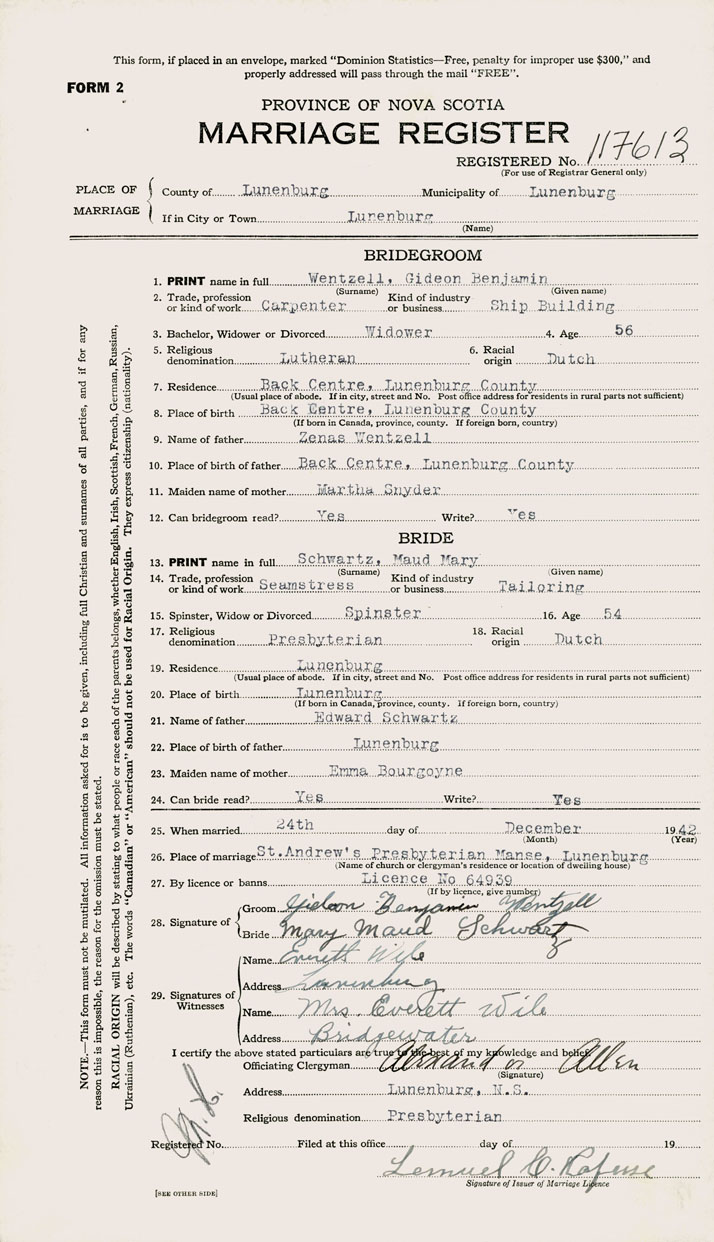 This form, if placed in an envelope, marked "Dominion Statistics—Free, penalty for improper use $300," and
properly addressed will pass through the mail "FREE".
FORM 2
PROVINCE OF NOVA SCOTIA
MARRIAGE REGISTER
REGISTERED No. 117613
(For use of Registrar General only)
PLACE OF MARRIAGE
County of Lunenburg Municipality of Lunenburg
If in City or Town Lunenburg
(Name)
BRIDEGROOM
1. PRINT name in full Wentzell, Gideon Benjamin
(Surname) (Given name)
2. Trade, profession or kind of work Carpenter Kind of industry or business Ship Building
3. Bachelor, Widower or Divorced Widower 4. Age 56
5. Religious denomination Lutheran 6. Racial origin Dutch
7. Residence Back Centre, Lunenburg County
(Usual place of abode. If in city, street and No. Post office address for residents in rural parts not sufficient)
8. Place of birth Back Centre, Lunenburg County
(If born in Canada, province, county. If foreign born, country)
9. Name of father Zenas Wentzell
10. Place of birth of father Back Centre, Lunenburg County
11. Maiden name of mother Martha Snyder
12. Can bridegroom read? Yes Write? Yes
BRIDE
13. PRINT name in full Schwartz, Maud Mary
(Surname) (Given name)
14. Trade, profession or kind of work Seamstress Kind of industry or business Tailoring
15. Spinster, Widow or Divorced Spinster 16. Age 54
17. Religious denomination Presbyterian 18. Racial origin Dutch
19. Residence Lunenburg
(Usual place of abode. If in city, street and No. Post office address for residents in rural parts not sufficient)
20. Place of birth Lunenburg
(If born in Canada, province, county. If foreign born, country)
21. Name of father Edward Schwartz
22. Place of birth of father Lunenburg
23. Maiden name of mother Emma Bourgoyne
24. Can bride read? Yes Write? Yes
25. When married 24th day of December 1942
(Month) (Year)
26. Place of marriage St.Andrew's Presbyterian Manse, Lunenburg
(Name of church or clergyman's residence or location of dwelling house)
27. By licence or banns Licence No 64939
(If by licence, give number)
28. Signature of
Groom Gideon Benjamin Wentzell
Bride Mary Maud Schwartz
29. Signatures of Witnesses
Name Everett Wile
Address Lunenburg
Name Mrs. Everett Wile
Address Bridgewater
I certify the above stated particulars are true to the best of my knowledge and belief.
Officiating Clergyman Allen
(Signature)
Address Lunenburg, N.S.
Religious denomination Presbyterian
Registered No. Filed at this office day of 19
Lemuel C. Rafuse
Signature of Issuer of Marriage Licence
[SEE OTHER SIDE]
NOTE.—This form must not be mutilated. All information asked for is to be given, including full Christian and surnames of all parties, and if for any
reason this is impossible, the reason for the omission must be stated.
RACIAL ORIGIN will be described by stating to what people or race each of the parents belongs, whether English, Irish, Scottish, French, German, Russian,
Ukrainian (Ruthenian), etc. The words "Canadian" or "American" should not be used for Racial Origin. They express citizenship (nationality).